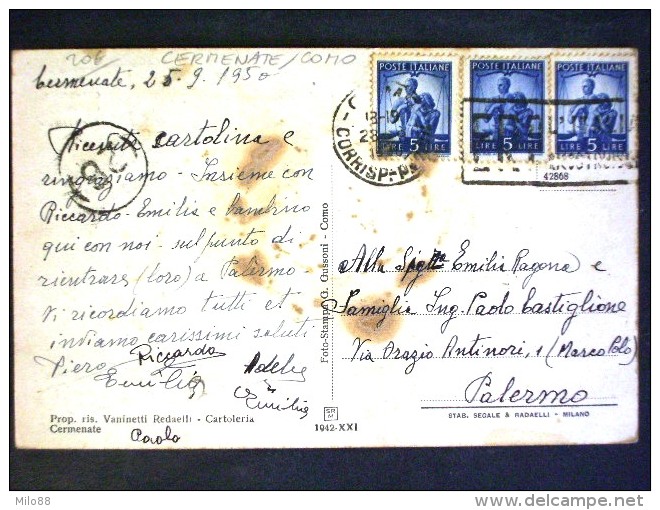 20€ CERMENATE/COMO
Cermenate, 25.9.1950
Ricevuta cartolina e
ringraziamo - Insieme con
Riccardo - Emilia e bambino
qui con noi - sul punto di
rientrare (loro) a Palermo -
Vi ricordiamo tutti et
inviamo carissimi saluti
Piero Riccardo Adele
Emilia Emilia
Paola
Prop. ris. Vaninetti Redaelli - Cartoleria
Cermenate
Foto-Stampa G. Gussoni - Como
SR
M
1942-XXI
POSTE ITALIANE
LIRE 5 LIRE
POSTE ITALIANE
LIRE 5 LIRE
POSTE ITALIANE
LIRE 5 LIRE
18-19
28
CORRISP-P
42868
Alla Emilia Ragona e
Famiglia Ing. Paolo Castiglione
Via Orazio Antinori, 1 (Marco Polo)
Palermo
STAB. SEGALE & RADAELLI - MILANO
Milo88
www.delcampe.net